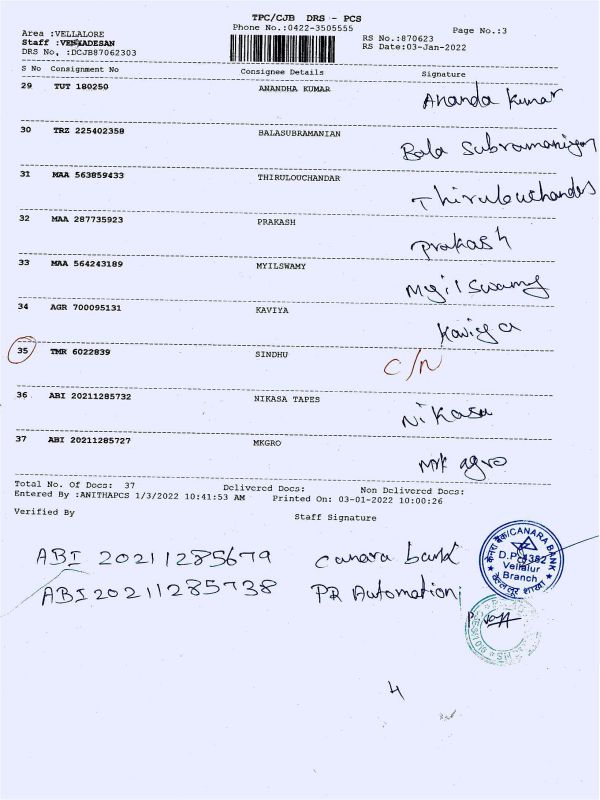 TPC/CJB DRS - PCS
Phone No.:0422-3505555
Page No.:3
Area :VELLALORE
Staff :VENKADESAN
DRS No. :DCJB87062303
RS No.:870623
RS Date:03-Jan-2022
S No Consignment No Consignee Details Signature
29 TUT 180250 ANANDHA KUMAR Ananda Kumar
30 TRZ 225402358 BALASUBRAMANIAN Bala Subramaniyan
31 MAA 563859433 THIRULOUCHANDAR Thirulouchandar
32 MAA 287735923 PRAKASH Prakash
33 MAA 564243189 MYILSWAMY Myilswamy
34 AGR 700095131 KAVIYA Kaviya
35 TMR 6022839 SINDHU C/N
36 ABI 20211285732 NIKASA TAPES Nikasa
37 ABI 20211285727 MKGRO MK agro
Total No. Of Docs: 37 Delivered Docs: Non Delivered Docs:
Entered By :ANITHAPCS 1/3/2022 10:41:53 AM Printed On: 03-01-2022 10:00:26
Verified By Staff Signature
ABI 20211285679 Canara bank
ABI 20211285738 PR Automation
केनरा बैंक/CANARA BANK
D.P. 4382
Vellalur
Branch
वेल्लूर शाखा
4